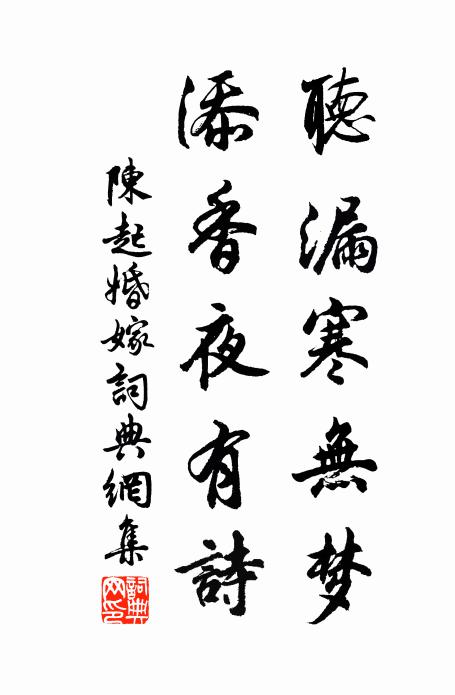 聽漏寒無梦
添香夜有詩
陳起婚嫁詞典網集
詞典網印